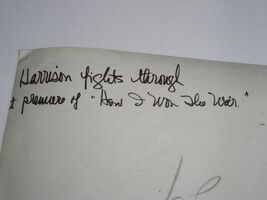 Harrison fights through
t premiere of "How I Won The War."